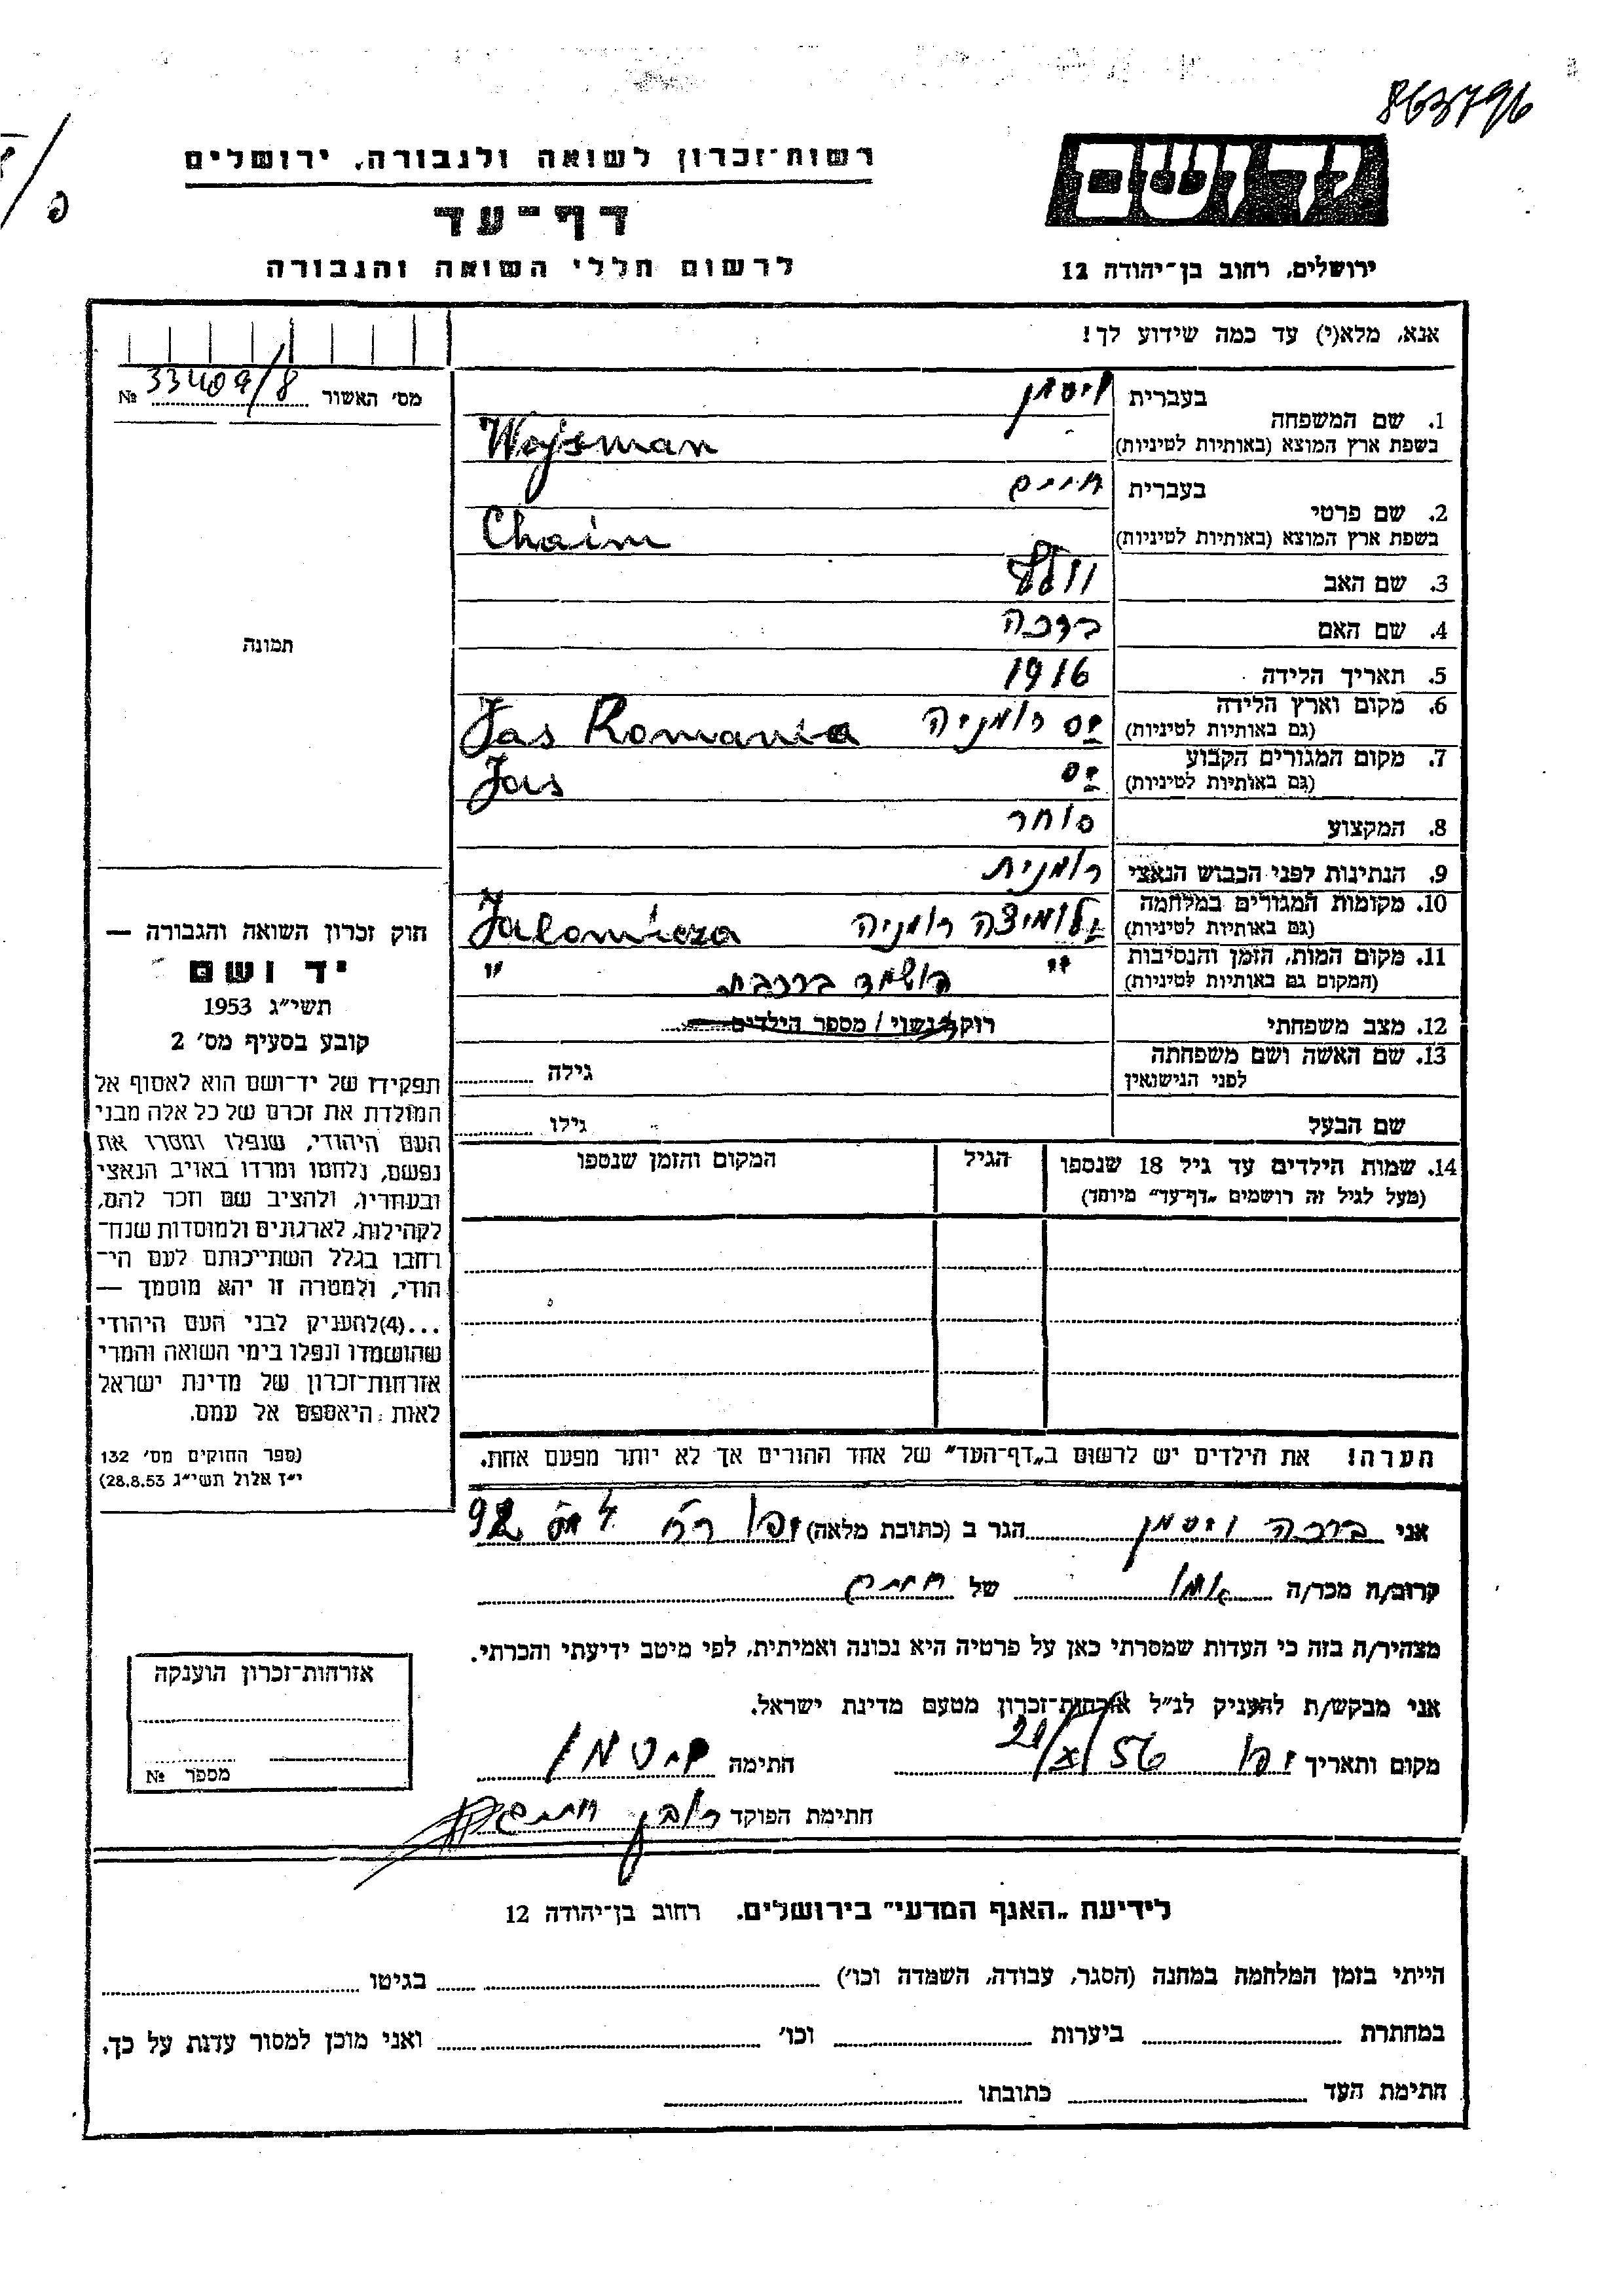 863796
רשות־זכרון לשואה ולגבורה, ירושלים
יד ושם
דף־עד
לרשום חללי השואה והגבורה
ירושלים, רחוב בן־יהודה 12
אנא, מלא(י) עד כמה שידוע לך!
מס' האשור 33409/8 №
1. שם המשפחה
בעברית ויסמן
בשפת ארץ המוצא (באותיות לטיניות) Wajsman
2. שם פרטי
בעברית חיים
בשפת ארץ המוצא (באותיות לטיניות) Chaim
3. שם האב
4. שם האם ברכה
5. תאריך הלידה 1916
6. מקום וארץ הלידה יס רומניה Jas Romania
(גם באותיות לטיניות)
7. מקום המגורים הקבוע יס Jas
(גם באותיות לטיניות)
8. המקצוע סוחר
9. הנתינות לפני הכבוש הנאצי רומנית
10. מקומות המגורים במלחמה ילומיצה רומניה Jalomicza
(גם באותיות לטיניות)
11. מקום המות, הזמן והנסיבות " הושמד ברכבת "
(המקום גם באותיות לטיניות)
12. מצב משפחתי רוק/נשוי/ מספר הילדים
13. שם האשה ושם משפחתה
לפני הנישואין גילה
שם הבעל גילו
14. שמות הילדים עד גיל 18 שנספו הגיל המקום והזמן שנספו
(מעל לגיל זה רושמים „דף־עד" מיוחד)
הערה! את הילדים יש לרשום ב„דף־העד" של אחד ההורים אך לא יותר מפעם אחת.
תמונה
חוק זכרון השואה והגבורה —
יד ושם
תשי״ג 1953
קובע בסעיף מס' 2
תפקידו של יד־ושם הוא לאסוף אל
המולדת את זכרם של כל אלה מבני
העם היהודי, שנפלו ומסרו את
נפשם, נלחמו ומרדו באויב הנאצי
ובעוזריו, ולהציב שם וזכר להם,
לקהילות, לארגונים ולמוסדות שנח־
רחבו בגלל השתייכותם לעם הי־
הודי, ולמטרה זו יהא מוסמך —
...(4)להעניק לבני העם היהודי
שהושמדו ונפלו בימי השואה והמרי
אזרחות־זכרון של מדינת ישראל
לאות היאספם אל עמם.
(ספר החוקים מס' 132
י״ז אלול תשי״ג 28.8.53)
אני ברכה ויסמן הגר ב (כתובת מלאה) יפו רח 92
קרוב/ה מכר/ה אמו של חיים
מצהיר/ה בזה כי העדות שמסרתי כאן על פרטיה היא נכונה ואמיתית, לפי מיטב ידיעתי והכרתי.
אני מבקש/ת להעניק לנ״ל אזרחות־זכרון מטעם מדינת ישראל.
מקום ותאריך יפו 21/X/56 חתימה
חתימת הפוקד חיים
אזרחות־זכרון הוענקה
מספר №
לידיעת „האגף המדעי" בירושלים, רחוב בן־יהודה 12
הייתי בזמן המלחמה במחנה (הסגר, עבודה, השמדה וכו') בגיטו
במחתרת ביערות וכו' ואני מוכן למסור עדות על כך.
חתימת העד כתובתו